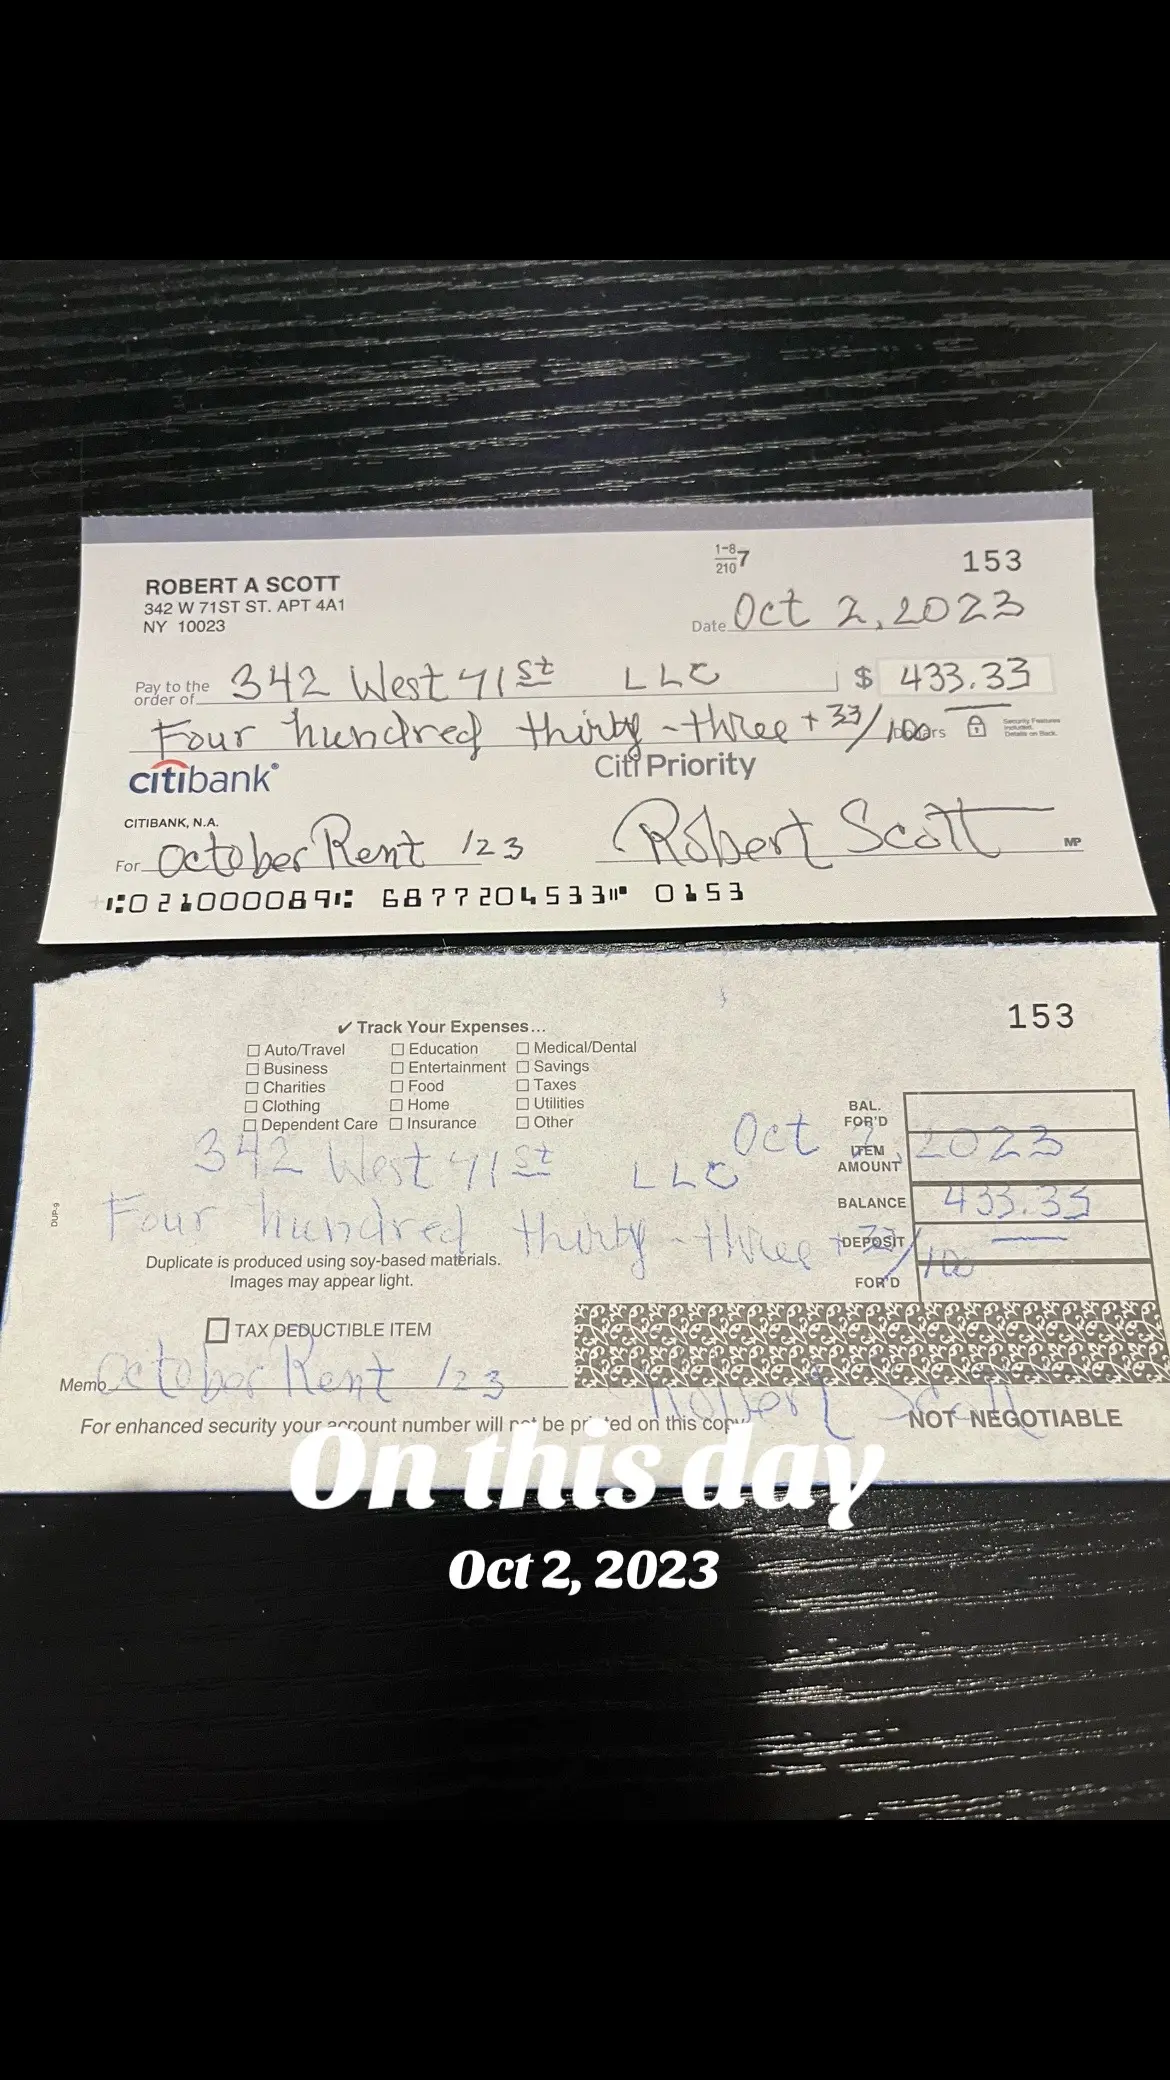 1-8 7
210
153
ROBERT A SCOTT
342 W 71ST ST. APT 4A1
NY 10023
Date Oct 2, 2023
Pay to the order of 342 West 71st LLC $ 433.33
Four hundred thirty-three + 33/100
Security Features
Included.
Details on Back.
citibank® Citi Priority
CITIBANK, N.A.
For October Rent /23 Robert Scott MP
⑆021000089⑆ 6877204533⑈ 0153
153
✓ Track Your Expenses...
☐ Auto/Travel ☐ Education ☐ Medical/Dental
☐ Business ☐ Entertainment ☐ Savings
☐ Charities ☐ Food ☐ Taxes
☐ Clothing ☐ Home ☐ Utilities
☐ Dependent Care ☐ Insurance ☐ Other
BAL. FOR'D
Oct 2, 2023
ITEM AMOUNT
342 West 71st LLC
BALANCE 433.33
Four hundred thirty-three + 33/100
DEPOSIT
FOR'D
DUP-9
Duplicate is produced using soy-based materials.
Images may appear light.
☐ TAX DEDUCTIBLE ITEM
Memo October Rent /23
Robert Scott
For enhanced security your account number will not be printed on this copy.
NOT NEGOTIABLE
On this day
Oct 2, 2023